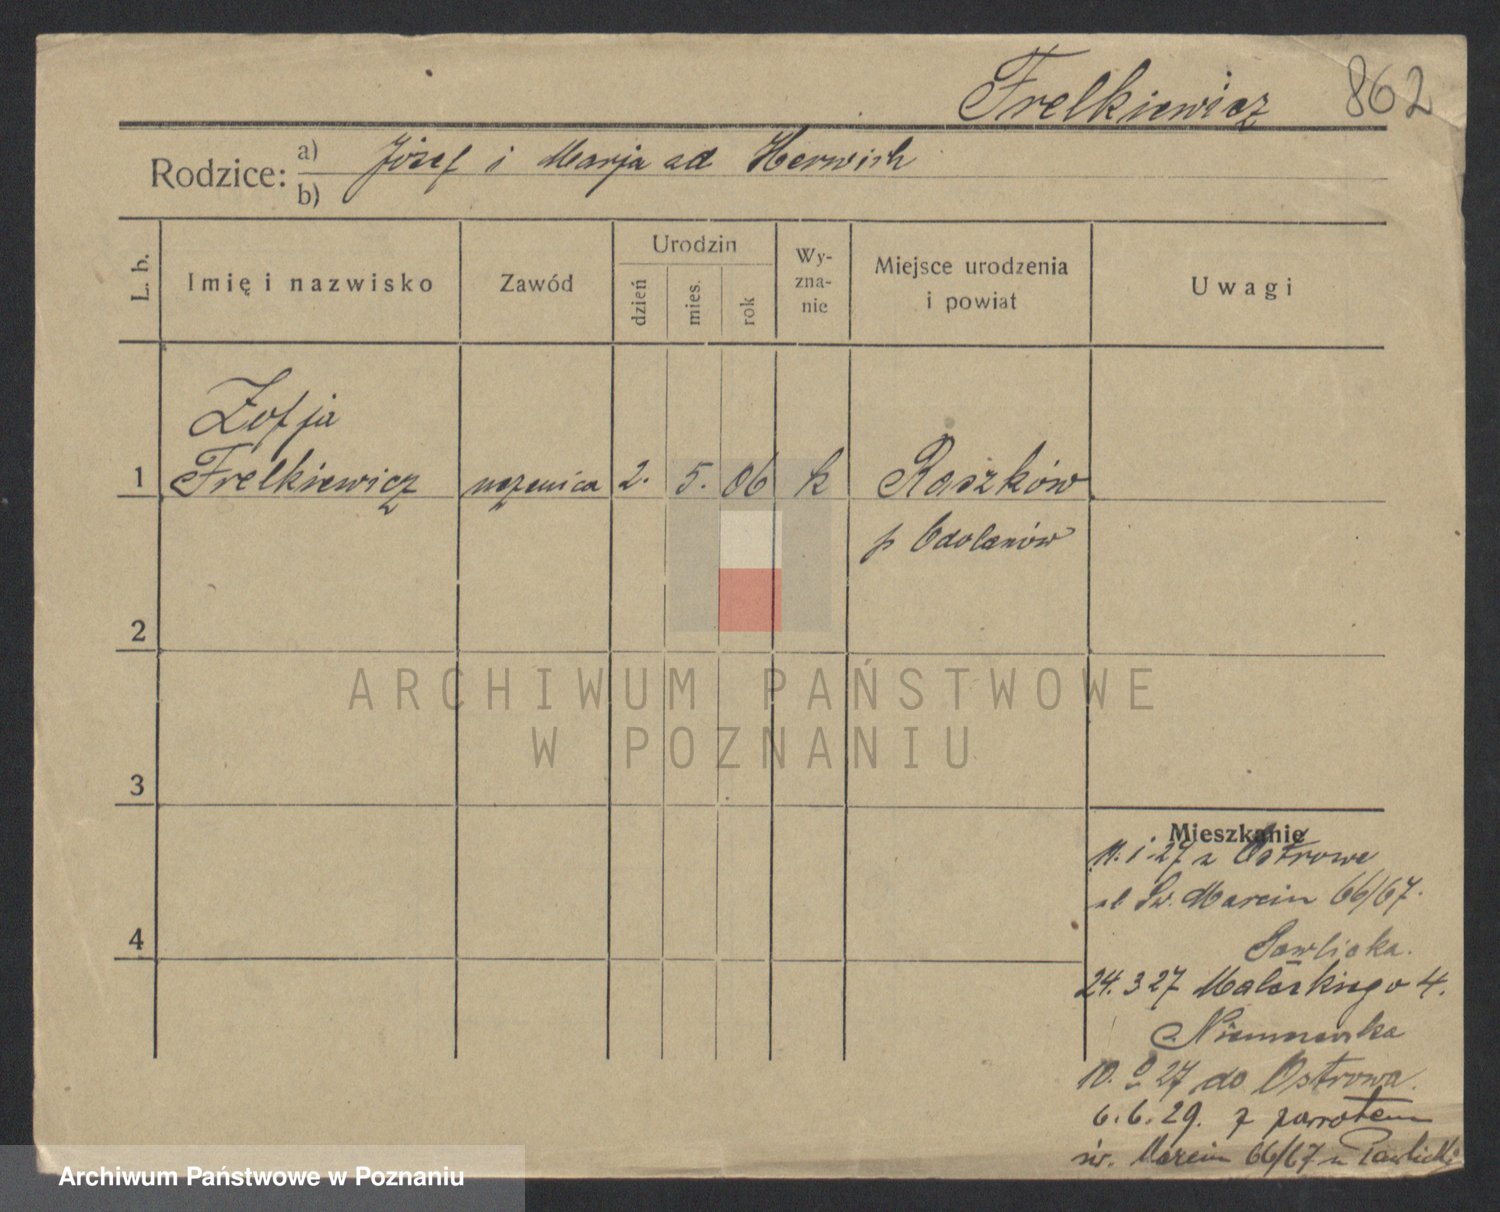 Frelkiewicz 862
Rodzice: a) Józef i Marja
b)
L. b.
Imię i nazwisko
Zawód
Urodzin
dzień
mies.
rok
Wy-
zna-
nie
Miejsce urodzenia
i powiat
Uwagi
Zofja
1 Frelkiewicz uczenica 2. 5. 06 k Raszków
p Odolanów
2
ARCHIWUM PAŃSTWOWE
W POZNANIU
3
Mieszkanie
11. 1 27 z Ostrowa
Św. Marcin 66/67.
4
24. 3 27 4.
10. 27 do Ostrowa.
6. 6. 29. z
św. Marcin 66/67 u Pawlicki
Archiwum Państwowe w Poznaniu